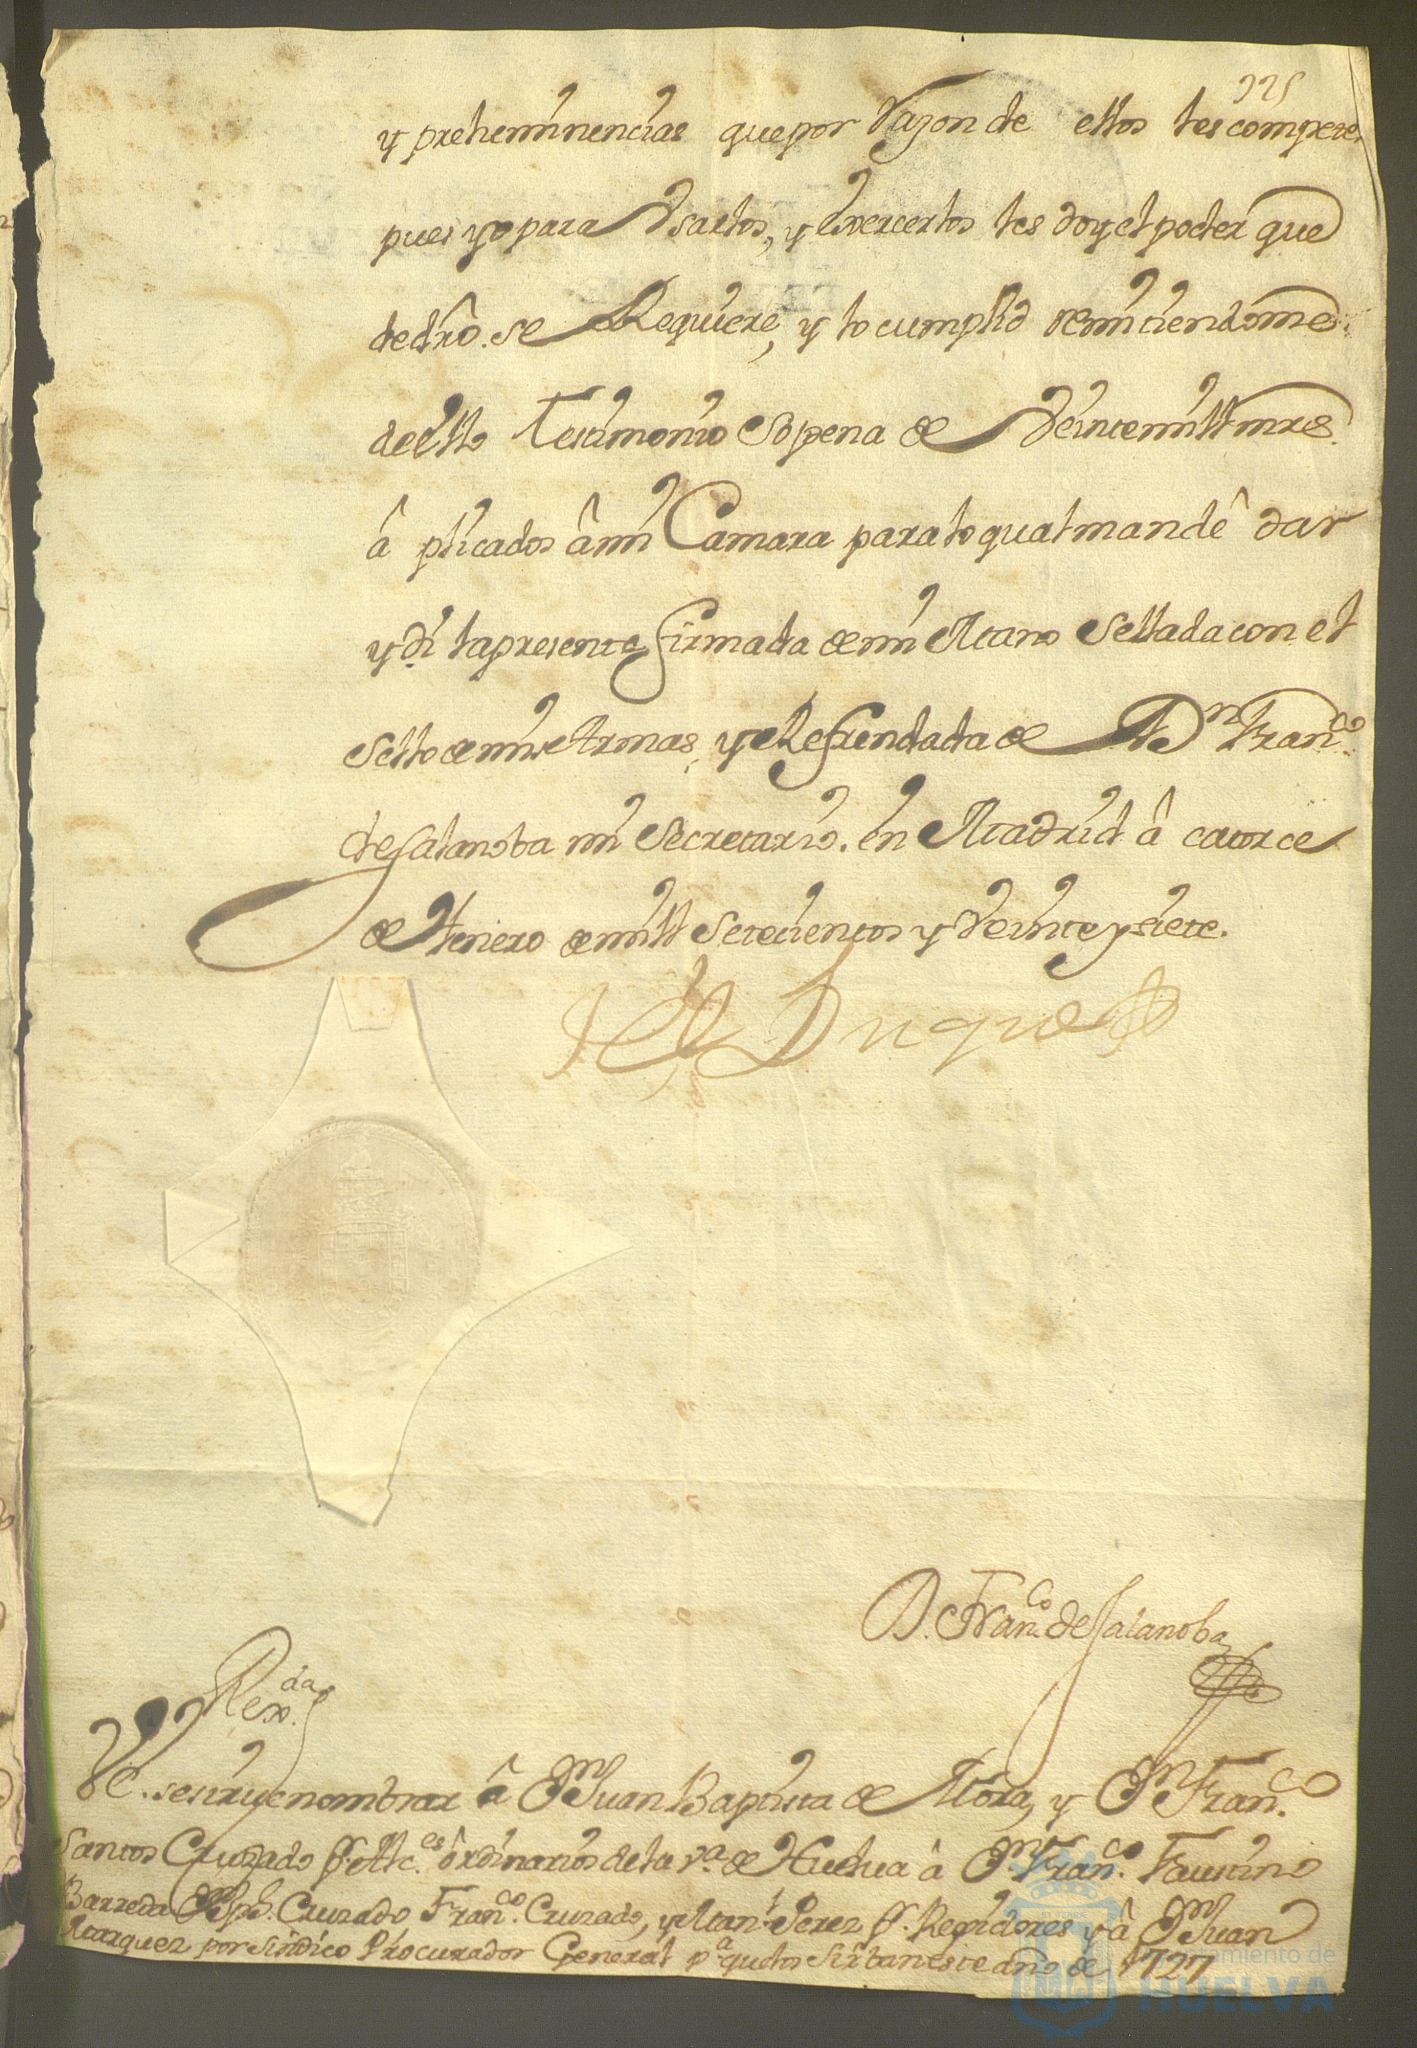 225
y preheminencias que por Razon de ellos les compete,
pues yo para Vsarlos, y exercerlos les doy el poder que
de dro. se Requiere, y lo cumplid remitiendome
de ello Testimonio so pena de Veinte mill mrs.
â plicados â mi Camara para lo qual mandê dar
y di la presente firmada de mi Mano Sellada con el
Sello de mis Armas, y Refrendada de Dn. Franco.
de Salanoba mi Secretario. en Madrid â catorce
de Henero de mill Setecientos y Veinte y siete.
El Duque
D. Franco. de Salanoba
Rexda.
VE. se sirve nombrar â Dn. Juan Baptista de Mora, y Dn. Franco.
Santos Cruzado pr. Alces. ôrdinarios de la va. de Huelua â Dn. Franco. Faustino
Barreda Dn. Jph. Cruzado Franco. Cruzado, y Manl. Perez pr. Regidores y â Dn. Juan
Marquez por Sindico Procurador General pa. que los sirban este año de 1727
Ayuntamiento de
HUELVA